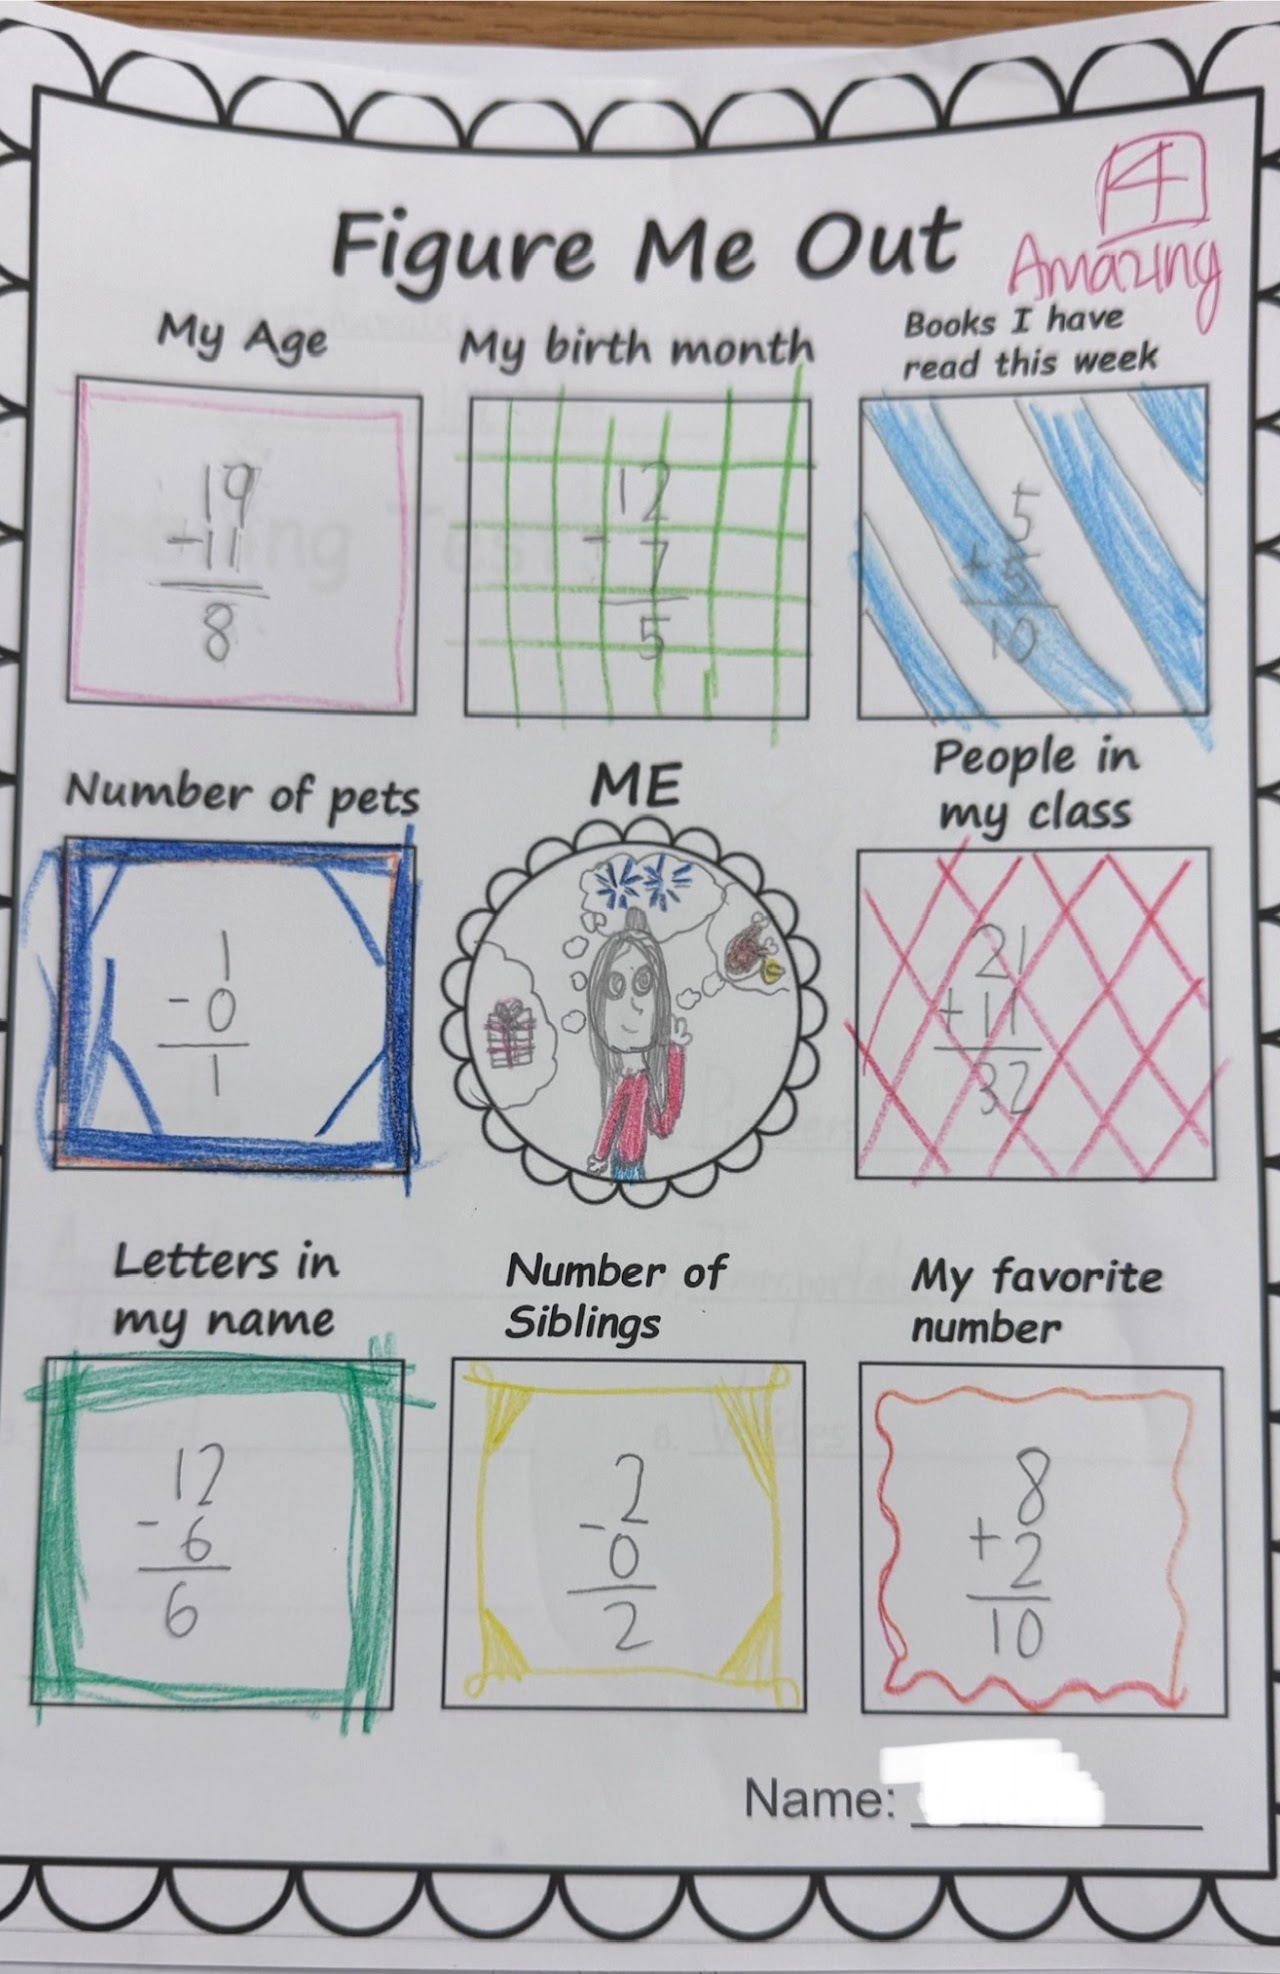 4
Amazing
Figure Me Out
My Age
19
-11
8
My birth month
12
- 7
5
Books I have
read this week
5
+ 5
10
Number of pets
1
- 0
1
ME
People in
my class
21
+ 11
32
Letters in
my name
12
- 6
6
Number of
Siblings
2
- 0
2
My favorite
number
8
+ 2
10
Name: